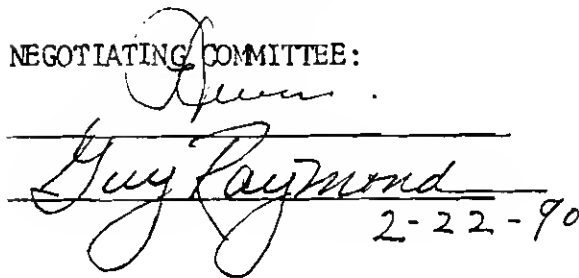 NEGOTIATING COMMITTEE:
Guy Raymond
2-22-90